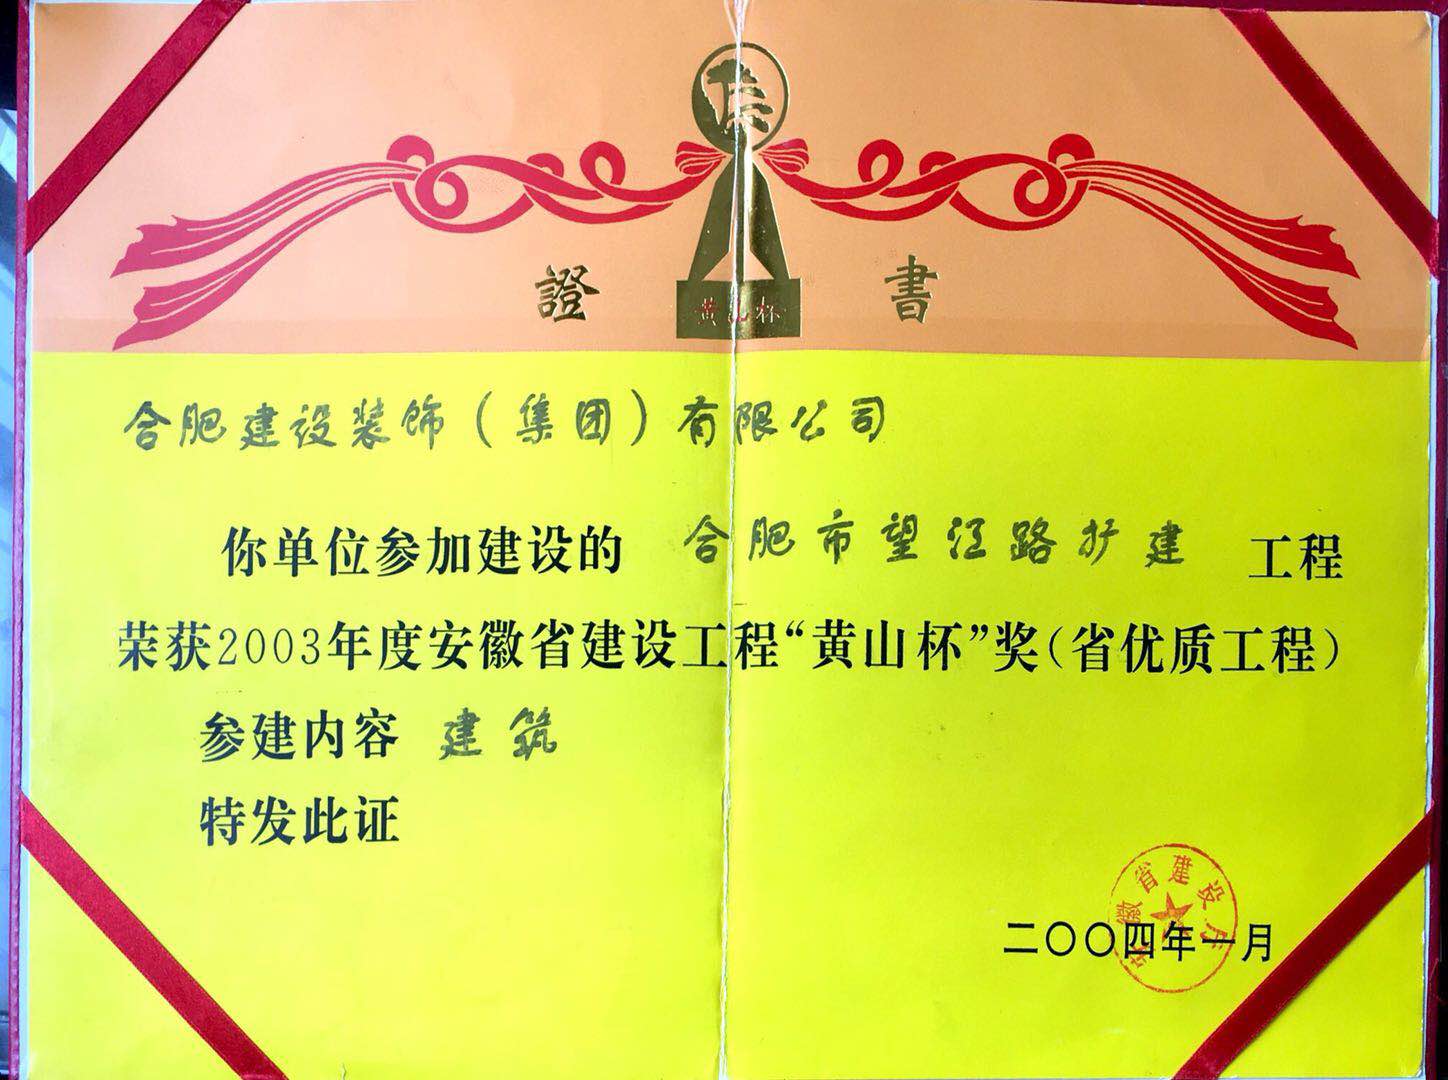 黄山杯
證書
合肥建设装饰（集团）有限公司
你单位参加建设的 合肥市望江路扩建 工程
荣获2003年度安徽省建设工程“黄山杯”奖（省优质工程）
参建内容 建筑
特发此证
安徽省建设厅
二〇〇四年一月